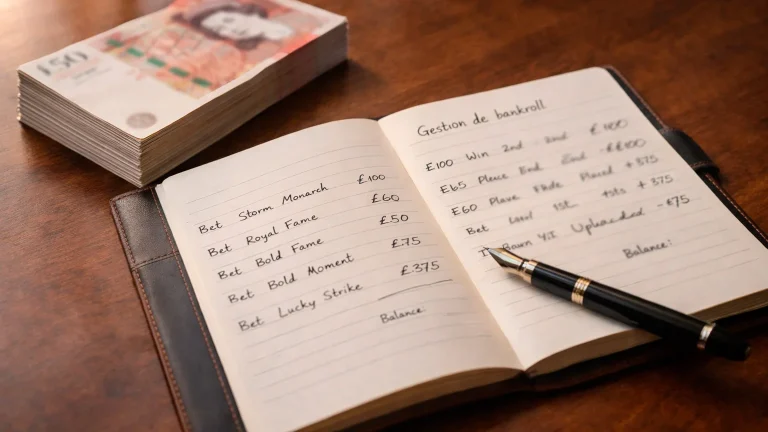 £50
Bet Storm Monarch £100
Bet Royal Fame £60
Bet Bold Fame £50
Bet Bold Moment £75
Bet Lucky Strike £375
Balance:
Gestion de bankroll
£100 Win 2nd 2nd
£65 End
£60 Placed + 375
Bet 1st + 375
Uploaded -€75
Balance: